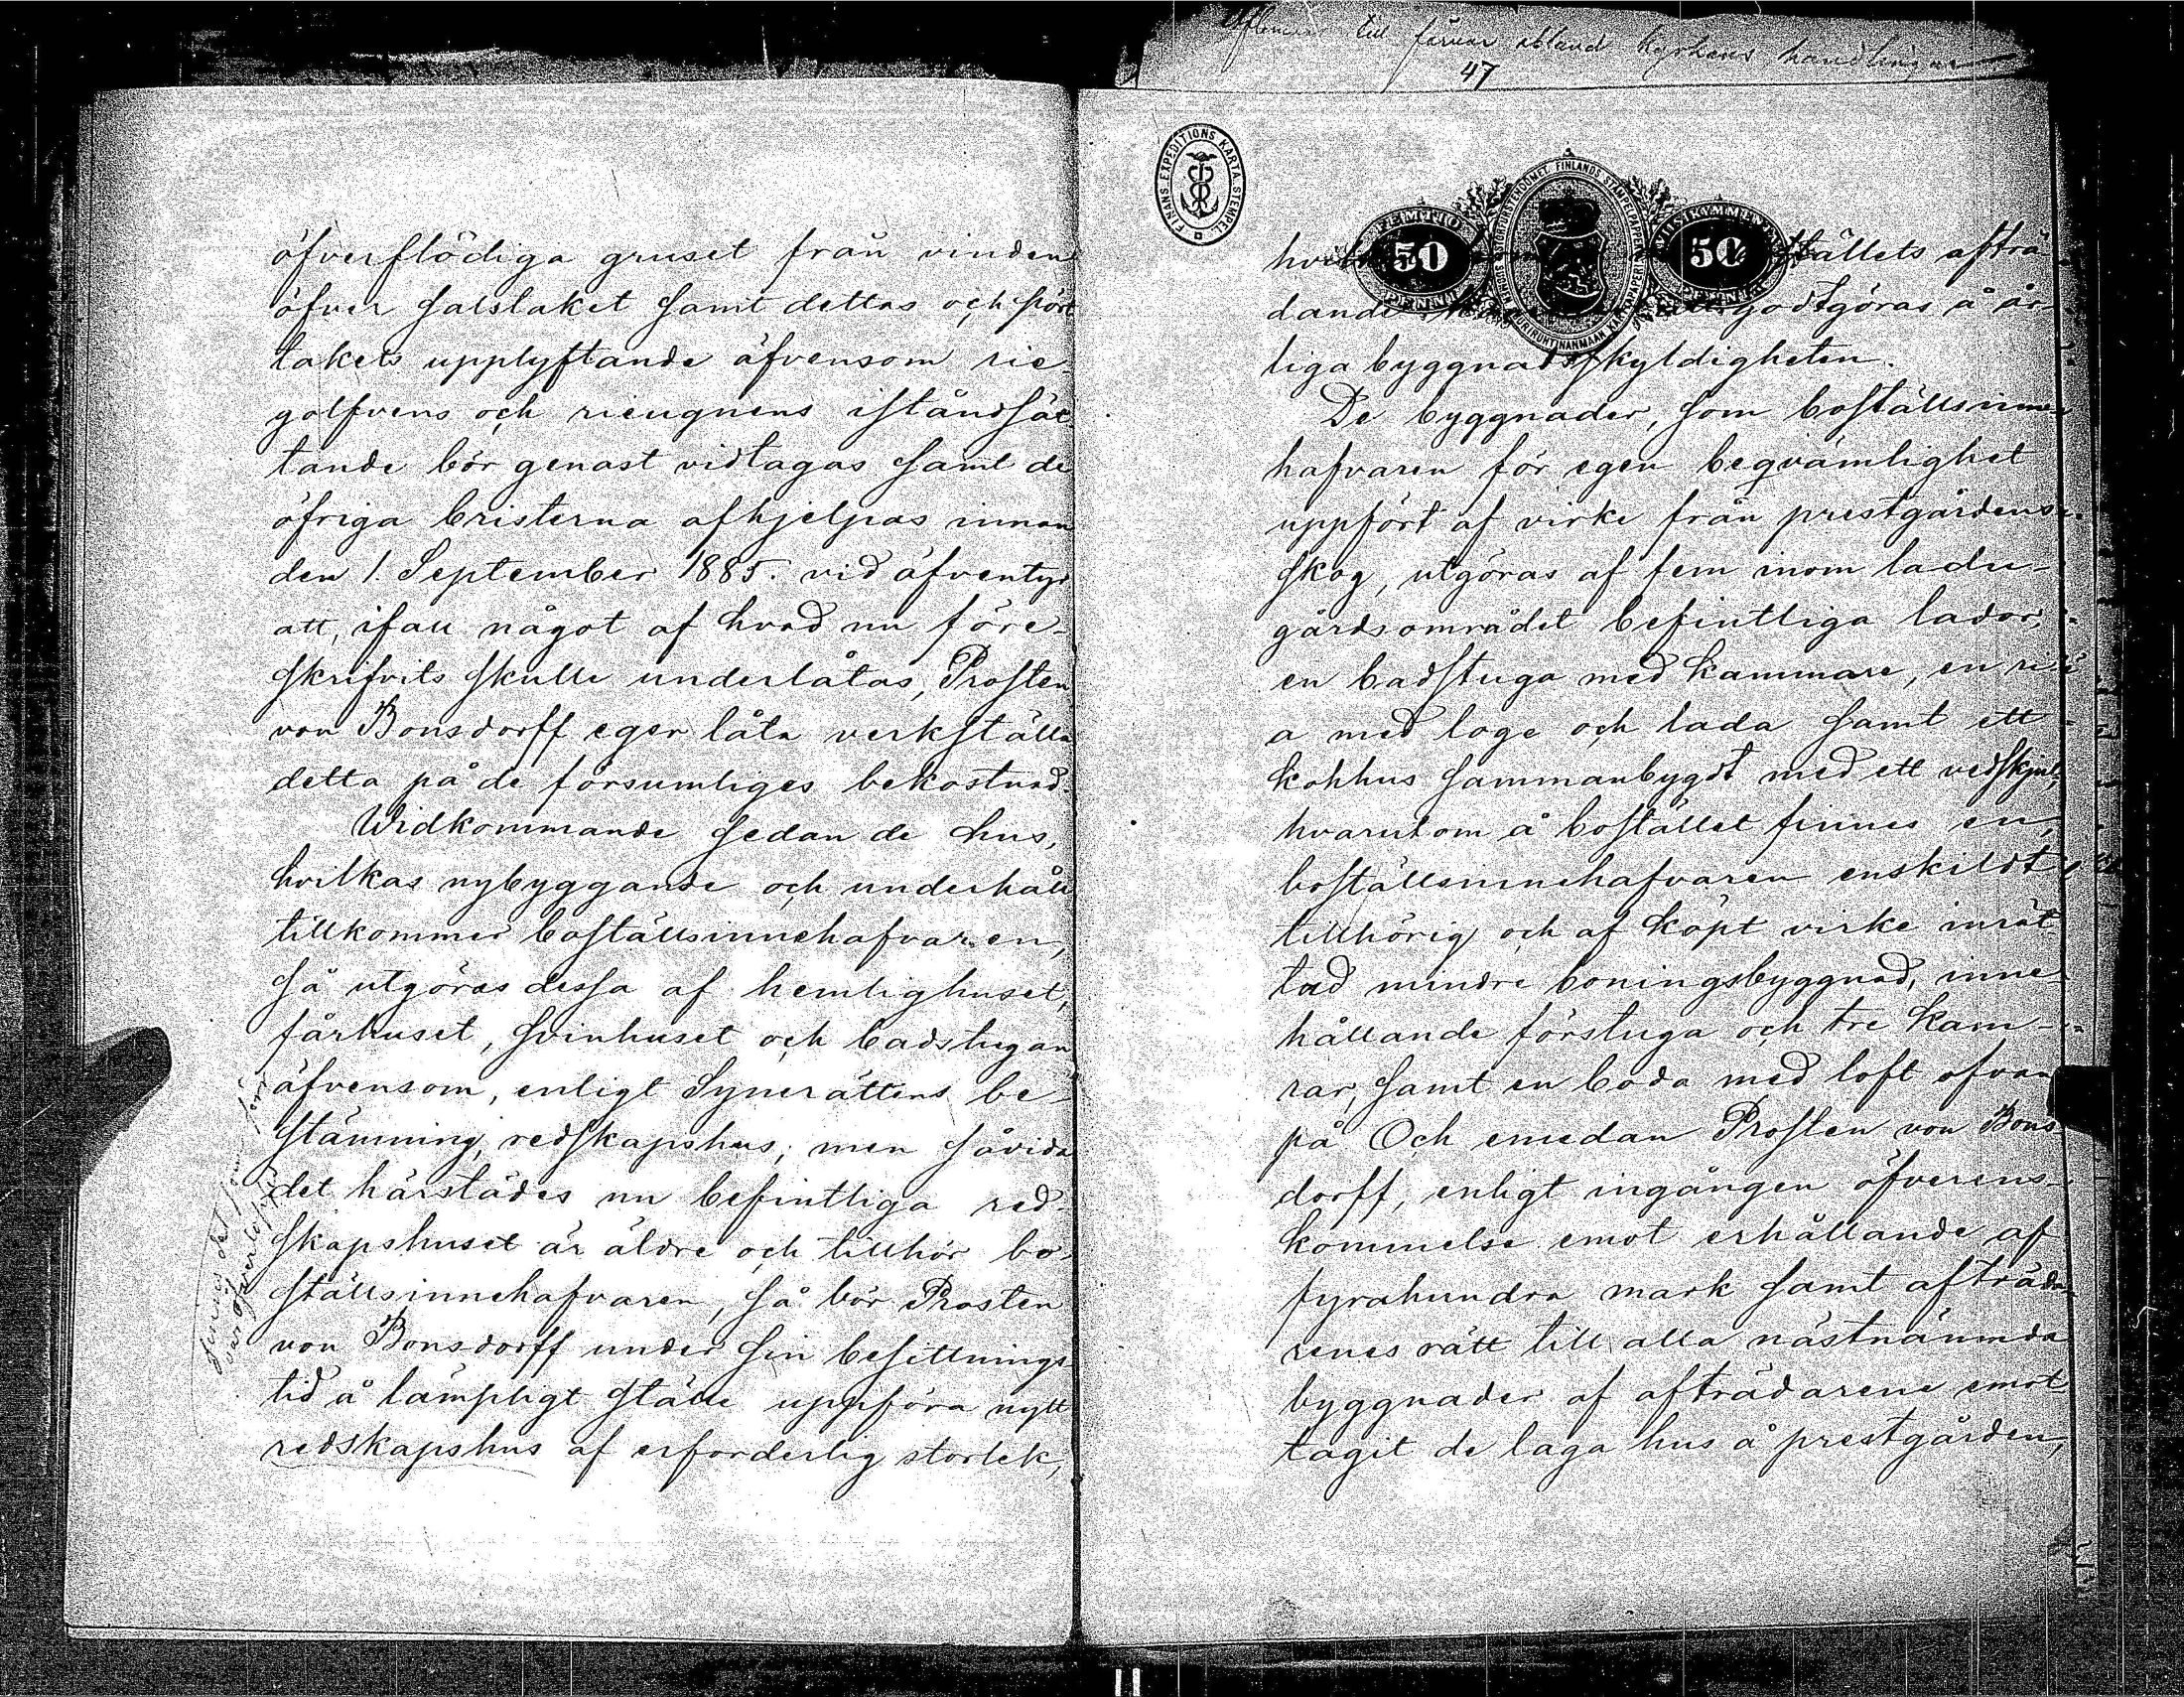 öfverflödiga gruset från vinden
öfver salstaket samt dettas och pört
takets upplyftande äfvensom rie-
golfvens och rieugnens iståndsät
tande bör genast vidtagas samt de
öfriga bristerna afhjelpas innan
den 1. September 1885. vid äfventyr
att, ifall något af hvad nu före-
skrifvits skulle underlåtas, Prosten
von Bonsdorff eger låta verkställa
detta på de försumliges bekostnad.
Widkommande sedan de hus,
hvilkas nybyggande och underhåll
tillkommer boställsinnehafvaren,
så utgöras dessa af hemlighuset,
fårhuset, svinhuset och badstugan
äfvensom, enligt Synerättens be-
stämning, redskapshus; men såvida
det härstädes nu befintliga red-
skapshuset är äldre och tillhör bo-
ställsinnehafvaren, så bör Prosten
von Bonsdorff under sin besittnings
tid å lämpligt ställe uppföra nytt
redskapshus af erforderlig storlek,
det som
var öfverlopps
till kyrkans handlingar
47
FINANS EXPEDITIONS KARTA. STEMPEL.
FEMTIO 50 PENNI
FINLANDS STÄMPELPAPPER
VIISIKYMMENTÄ 50 PENNIÄ
ställets afträ-
dande godtgöras å år-
liga byggnadsskyldigheten.
De byggnader, som boställsinne-
hafvaren för egen beqvämlighet
uppfört af virke från prestgårdens
skog, utgöras af fem inom ladu-
gårdsområdet befintliga lador,
en badstuga med kammare, en ri-
a med loge och lada samt ett
kohhus sammanbygdt med ett vedskjul,
hvarutom å bostället finnes en,
boställsinnehafvaren enskildt
tillhörig och af köpt virke inrät-
tad mindre boningsbyggnad, inne-
hållande förstuga och tre kam-
rar, samt en boda med loft ofvan
på. Och emedan Prosten von Bons
dorff, enligt ingången öfverens-
kommelse emot erhållande af
fyrahundra mark samt afträda-
renes rätt till alla nästnämnda
byggnader af afträdarene emot
tagit de laga hus å prestgården,